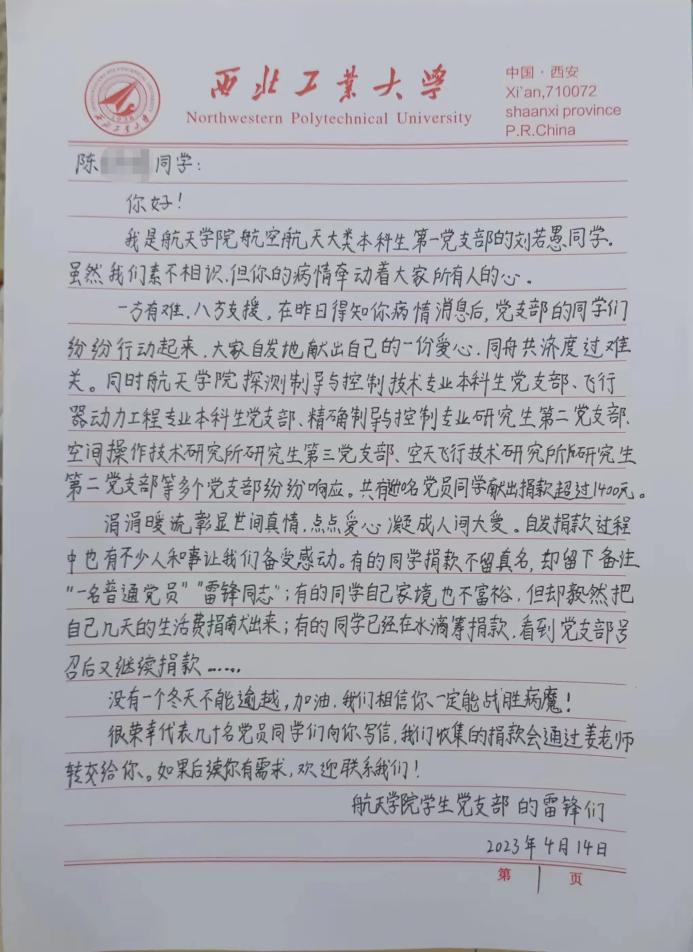 西北工业大学
Northwestern Polytechnical University
中国·西安
Xi'an,710072
shaanxi province
P.R.China
陈 同学:
你好!
我是航天学院航空航天大类本科生第一党支部的刘若愚同学。
虽然我们素不相识,但你的病情牵动着大家所有人的心。
一方有难,八方支援,在昨日得知你病情消息后,党支部的同学们
纷纷行动起来,大家自发地献出自己的一份爱心,同舟共济度过难
关。同时航天学院探测制导与控制技术专业本科生党支部、飞行
器动力工程专业本科生党支部、精确制导与控制专业研究生第二党支部、
空间操作技术研究所研究生第三党支部、空天飞行技术研究所研究生
第二党支部等多个党支部纷纷响应。共有 名党员同学献出捐款超过1400元。
涓涓暖流,彰显世间真情,点点爱心,凝成人间大爱。自发捐款过程
中也有不少人和事让我们备受感动。有的同学捐款不留真名,却留下备注
“一名普通党员”“雷锋同志”;有的同学自己家境也不富裕,但却毅然把
自己几天的生活费捐献出来;有的同学已经在水滴筹捐款,看到党支部号
召后又继续捐款……
没有一个冬天不能逾越,加油,我们相信你一定能战胜病魔!
很荣幸代表几十名党员同学们向你写信,我们收集的捐款会通过姜老师
转交给你。如果后续你有需求,欢迎联系我们!
航天学院学生党支部的雷锋们
2023年4月14日
第 1 页